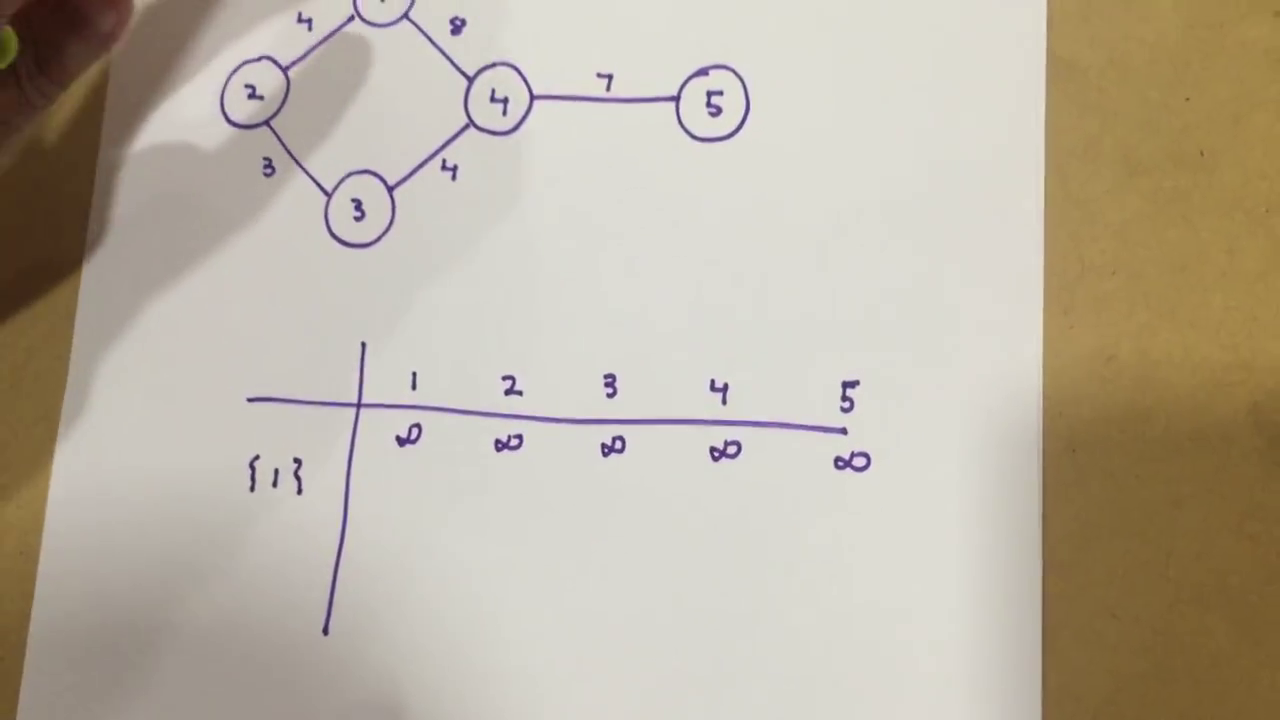 4 8
2 4 7 5
3 4
3
1 2 3 4 5
∞ ∞ ∞ ∞ ∞
{1}